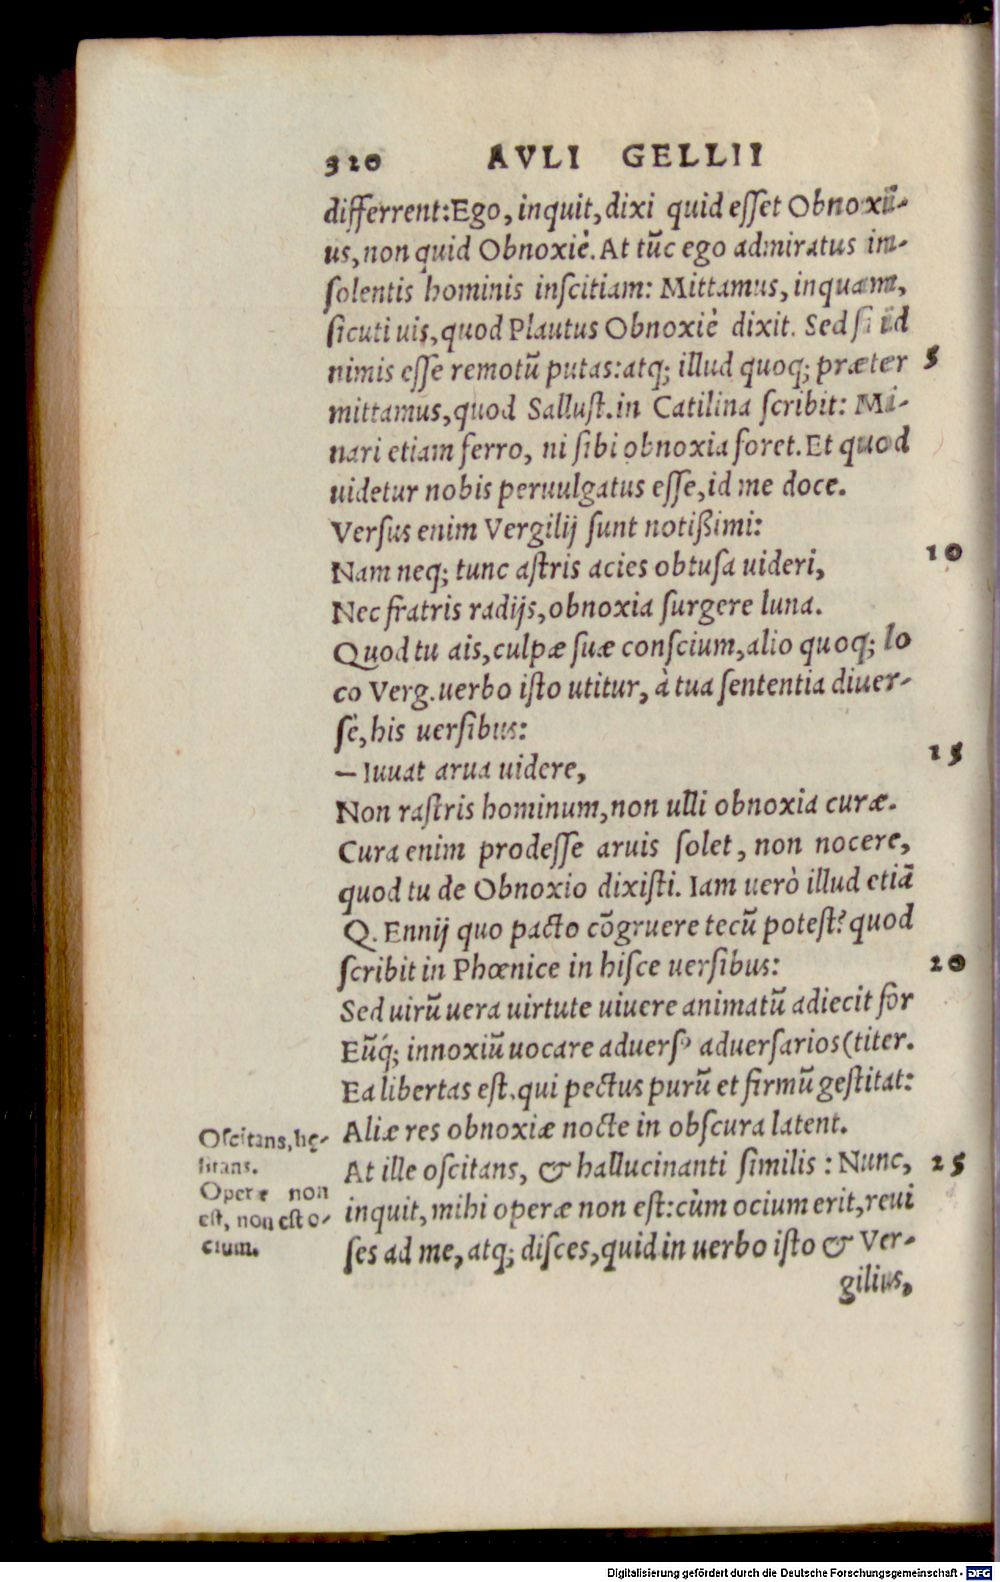 320 AVLI GELLII
differrent: Ego, inquit, dixi quid esset Obnoxi-
us, non quid Obnoxiè. At tũc ego admiratus in-
solentis hominis inscitiam: Mittamus, inquam,
sicuti uis, quod Plautus Obnoxiè dixit. Sed si id
nimis esse remotũ putas: atq; illud quoq; præter 5
mittamus, quod Sallust. in Catilina scribit: Mi-
nari etiam ferro, ni sibi obnoxia foret. Et quod
uidetur nobis peruulgatus esse, id me doce.
Versus enim Vergilij sunt notißimi:
Nam neq; tunc astris acies obtusa uideri, 10
Nec fratris radijs, obnoxia surgere luna.
Quod tu ais, culpæ suæ conscium, alio quoq; lo
co Verg. uerbo isto utitur, à tua sententia diuer-
sè, his uersibus:
– Iuuat arua uidere, 15
Non rastris hominum, non ulli obnoxia curæ.
Cura enim prodesse aruis solet, non nocere,
quod tu de Obnoxio dixisti. Iam uerò illud etiã
Q. Ennij quo pacto cõgruere tecũ potest? quod
scribit in Phœnice in hisce uersibus: 20
Sed uirũ uera uirtute uiuere animatũ adiecit for
Eũq́; innoxiũ uocare aduersꝰ aduersarios (titer.
Ea libertas est, qui pectus purũ et firmũ gestitat:
Aliæ res obnoxiæ nocte in obscura latent.
At ille oscitans, & hallucinanti similis: Nunc, 25
inquit, mihi operæ non est: cùm ocium erit, reui
ses ad me, atq; disces, quid in uerbo isto & Ver-
gilius,
Oscitans, hę-
sitans.
Operæ non
est, non est o-
cium.
Digitalisierung gefördert durch die Deutsche Forschungsgemeinschaft - DFG